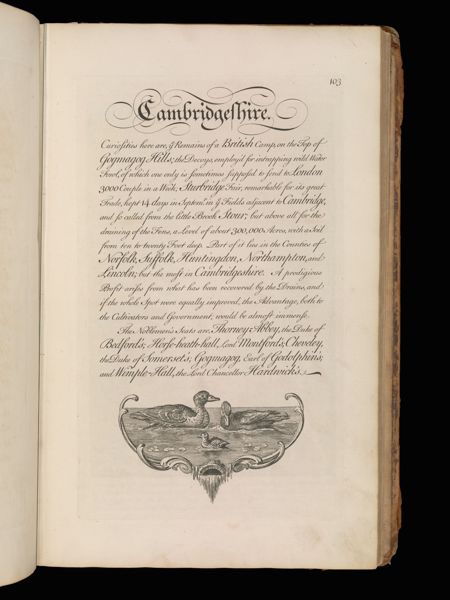 103
Cambridgeshire.
Curiosities here are, ẏ Remains of a British Camp, on the Top of
Gogmagog Hills; the Decoys, employ'd for intrapping wild Water
Fowl, of which one only is sometimes suppos'd to send to London
3000 Couple in a Week; Sturbridge Fair, remarkable for its great
Trade, kept 14 days in Septem.r in ẏ Fields adjacent to Cambridge,
and so called from the little Brook Stour; but above all for the
draining of the Fens, a Level of about 300,000 Acres, with a Soil
from ten to twenty Foot deep. Part of it lies in the Counties of
Norfolk, Suffolk, Huntingdon, Northampton, and
Lincoln; but the most in Cambridgeshire. A prodigious
Profit arises from what has been recovered by the Drains, and
if the whole Spot were equally improved, the Advantage, both to
the Cultivators and Government, would be almost immense.
The Noblemen's Seats are, Thorney-Abbey, the Duke of
Bedford's; Horse-heath-hall, Lord Montford's; Cheveley,
the Duke of Somerset's, Gogmagog, Earl of Godolphin's;
and Wimple-Hall, the Lord Chancellor Hardwick's.